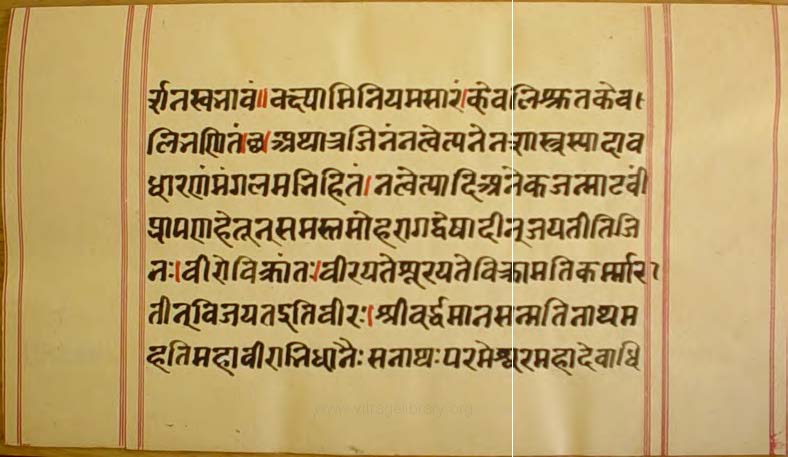 र्शनस्वभावं॥ वक्ष्यामि नियमसारं।केवलिश्रुतकेव
लिभणितं।छ।अथात्र जिनं नत्वेत्यनेन शास्त्रस्यादाव
धारणं मंगलमभिहितं। नत्वेत्यादि अनेकजन्माटवी
प्रापणहेतून् समस्तमोहरागद्वेषादीन् जयतीति जि
नः।वीरो विक्रांतः।वीरयते शूरयते विक्रामति कर्म्मारा
तीन् विजयत इति वीरः।श्रीवर्द्धमानसन्मतिनाथम
हतिमहावीराभिधानैः सनाथः परमेश्वरमहादेवाधि
www.vitragelibrary.org